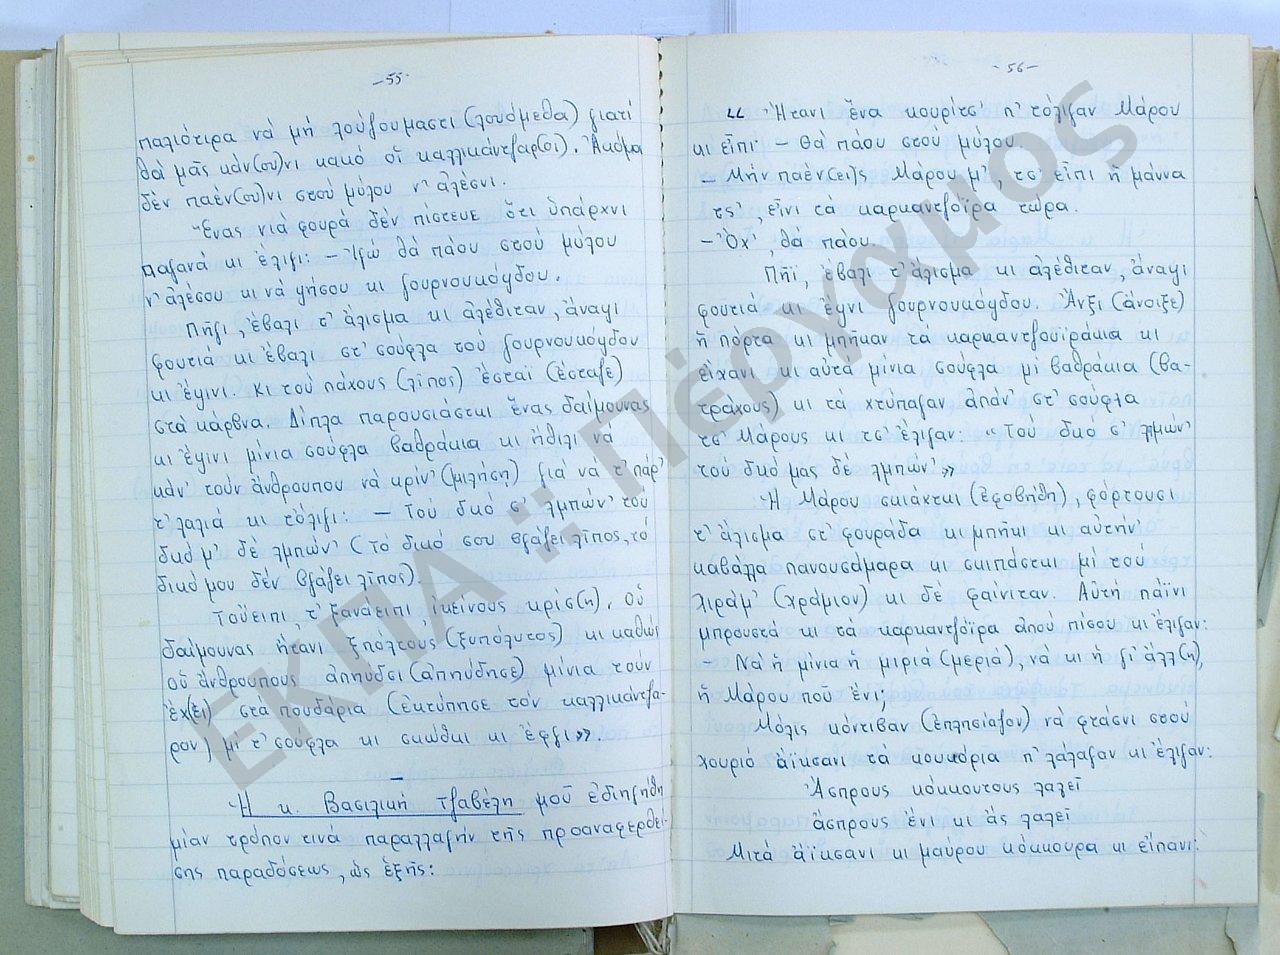 -55-
παλιότιρα νὰ μὴ λούζουμαστι (λουόμεθα) γιατὶ
θὰ μᾶς κάν(ου)νι κακό οἱ καλλικάντζαρ(οι). Ἀκόμα
δὲν παέν(ου)νι στοὺ μύλου ν' ἀλέσνι.
Ἕνας νιὰ φουρὰ δὲν πίστευε ὅτι ὑπάρχνι
παγανὰ κι ἔλιγι: - Ἰγὼ θὰ πάου στοὺ μύλου
ν' ἀλέσου κι νὰ ψήσου κι γουρνουκόγδου.
Πῆγι, ἔβαλι τ' ἄλισμα κι ἀλέθιταν, ἄναψι
φουτιὰ κι ἔβαλι στ' σούφλα τοὺ γουρνουκόγδου
κι ἔψινι. Κι τοὺ πάχους (λίπος) ἔσταϊ (ἔσταζε)
στὰ κάρβνα. Δίπλα παρουσιάστκι ἕνας δαίμουνας
κι ἔψινι μίνια σούφλα βαθράκια κι ἤθιλι νὰ
κάν' τοὺν ἄνθρουπου νὰ κρίν' (μιλήση) γιὰ νὰ τ' πάρ'
τ' λαλιὰ κι τὄλιγι: - Τοὺ δικό σ' λμπών' τοὺ
δκό μ' δὲ λμπών' (τὸ δικό σου βγάζει λίπος, τὸ
δικό μου δὲν βγάζει λῖπος).
Τοὔειπι, τ' ξανάειπι, ἰκείνους κρίσ(η). Οὗ
δαίμουνας ἤτανι ξπόλτους (ξυπόλυτος) κι καθὼς
οὗ ἄνθρουπους ἀπηυδσι (ἀπηύδησε) μίνια τοὺν
ἔχ(ει) στὰ πουδάρια (ἐκτύπησε τὸν καλλικάντζα-
ρον) μὶ τ' σούφλα κι σκώθκι κι ἔφγι».
Ἡ κ. Βασιλικὴ Τζαβέλη μοῦ ἐδιηγήθη
μίαν τρόπον τινὰ παραλλαγὴν τῆς προαναφερθεί-
σης παραδόσεως, ὡς ἑξῆς:
-56-
"Ἤτανι ἕνα κουρίτσ' π' τὄλιγαν Μάρου
κι εἶπι: - Θὰ πάου στοὺ μύλου.
- Μὴν παέν(εις) Μάρου μ', τσ' εἶπι ἡ μάννα
τς', εἶνι τὰ καρκαντζοΐρα τώρα.
- Ὄχ', θὰ πάου.
Πῆϊ, ἔβαλι τ' ἄλισμα κι ἀλέθιταν, ἄναψι
φουτιὰ κι ἔψνι γουρνουκόγδου. Ἄνξι (ἄνοιξε)
ἡ πόρτα κι μπῆκαν τὰ καρκαντζουϊράκια κι
εἴχανι κι αὐτὰ μίνια σούφλα μὶ βαθράκια (βα-
τράχους) κι τὰ χτύπαγαν ἀπάν' στ' σούφλα
τσ' Μάρους κι τσ' ἔλιγαν: "Τοὺ δκό σ' λμπών'
τοὺ δκό μας δὲ λμπών'»
Ἡ Μάρου σκιάχτκι (ἐφοβήθη), φόρτουσι
τ' ἄλισμα στ' φουράδα κι μπῆκι κι αὐτὴν'
καβάλλα πανουσάμαρα κι σκιπάστκι μὶ τοὺ
λιράμ' (χράμιον) κι δὲ φαίνιταν. Αὐτὴ πάϊνι
μπρουστὰ κι τὰ καρκαντζόϊρα ἀποὺ πίσου κι ἔλιγαν:
- Νὰ ἡ μίνια ἡ μιριά (μεριά), νὰ κι ἡ γι' ἄλλ(η),
ἡ Μάρου ποῦ ἔνι;
Μόλις κόντιβαν (ἐπλησίαζον) νὰ φτάσνι στοὺ
χουριό ἄϊκσανι τὰ κουκόρια π' λάλαγαν κι ἔλιγαν:
Ἄσπρους κόκκουτους λαλεῖ
ἄσπρους ἔνι κι ἂς λαλεῖ
Μιτὰ ἄϊκσανι κι μαύρου κόκκουρα κι εἴπανι:
ΕΚΠΑ :: Πέργαμος